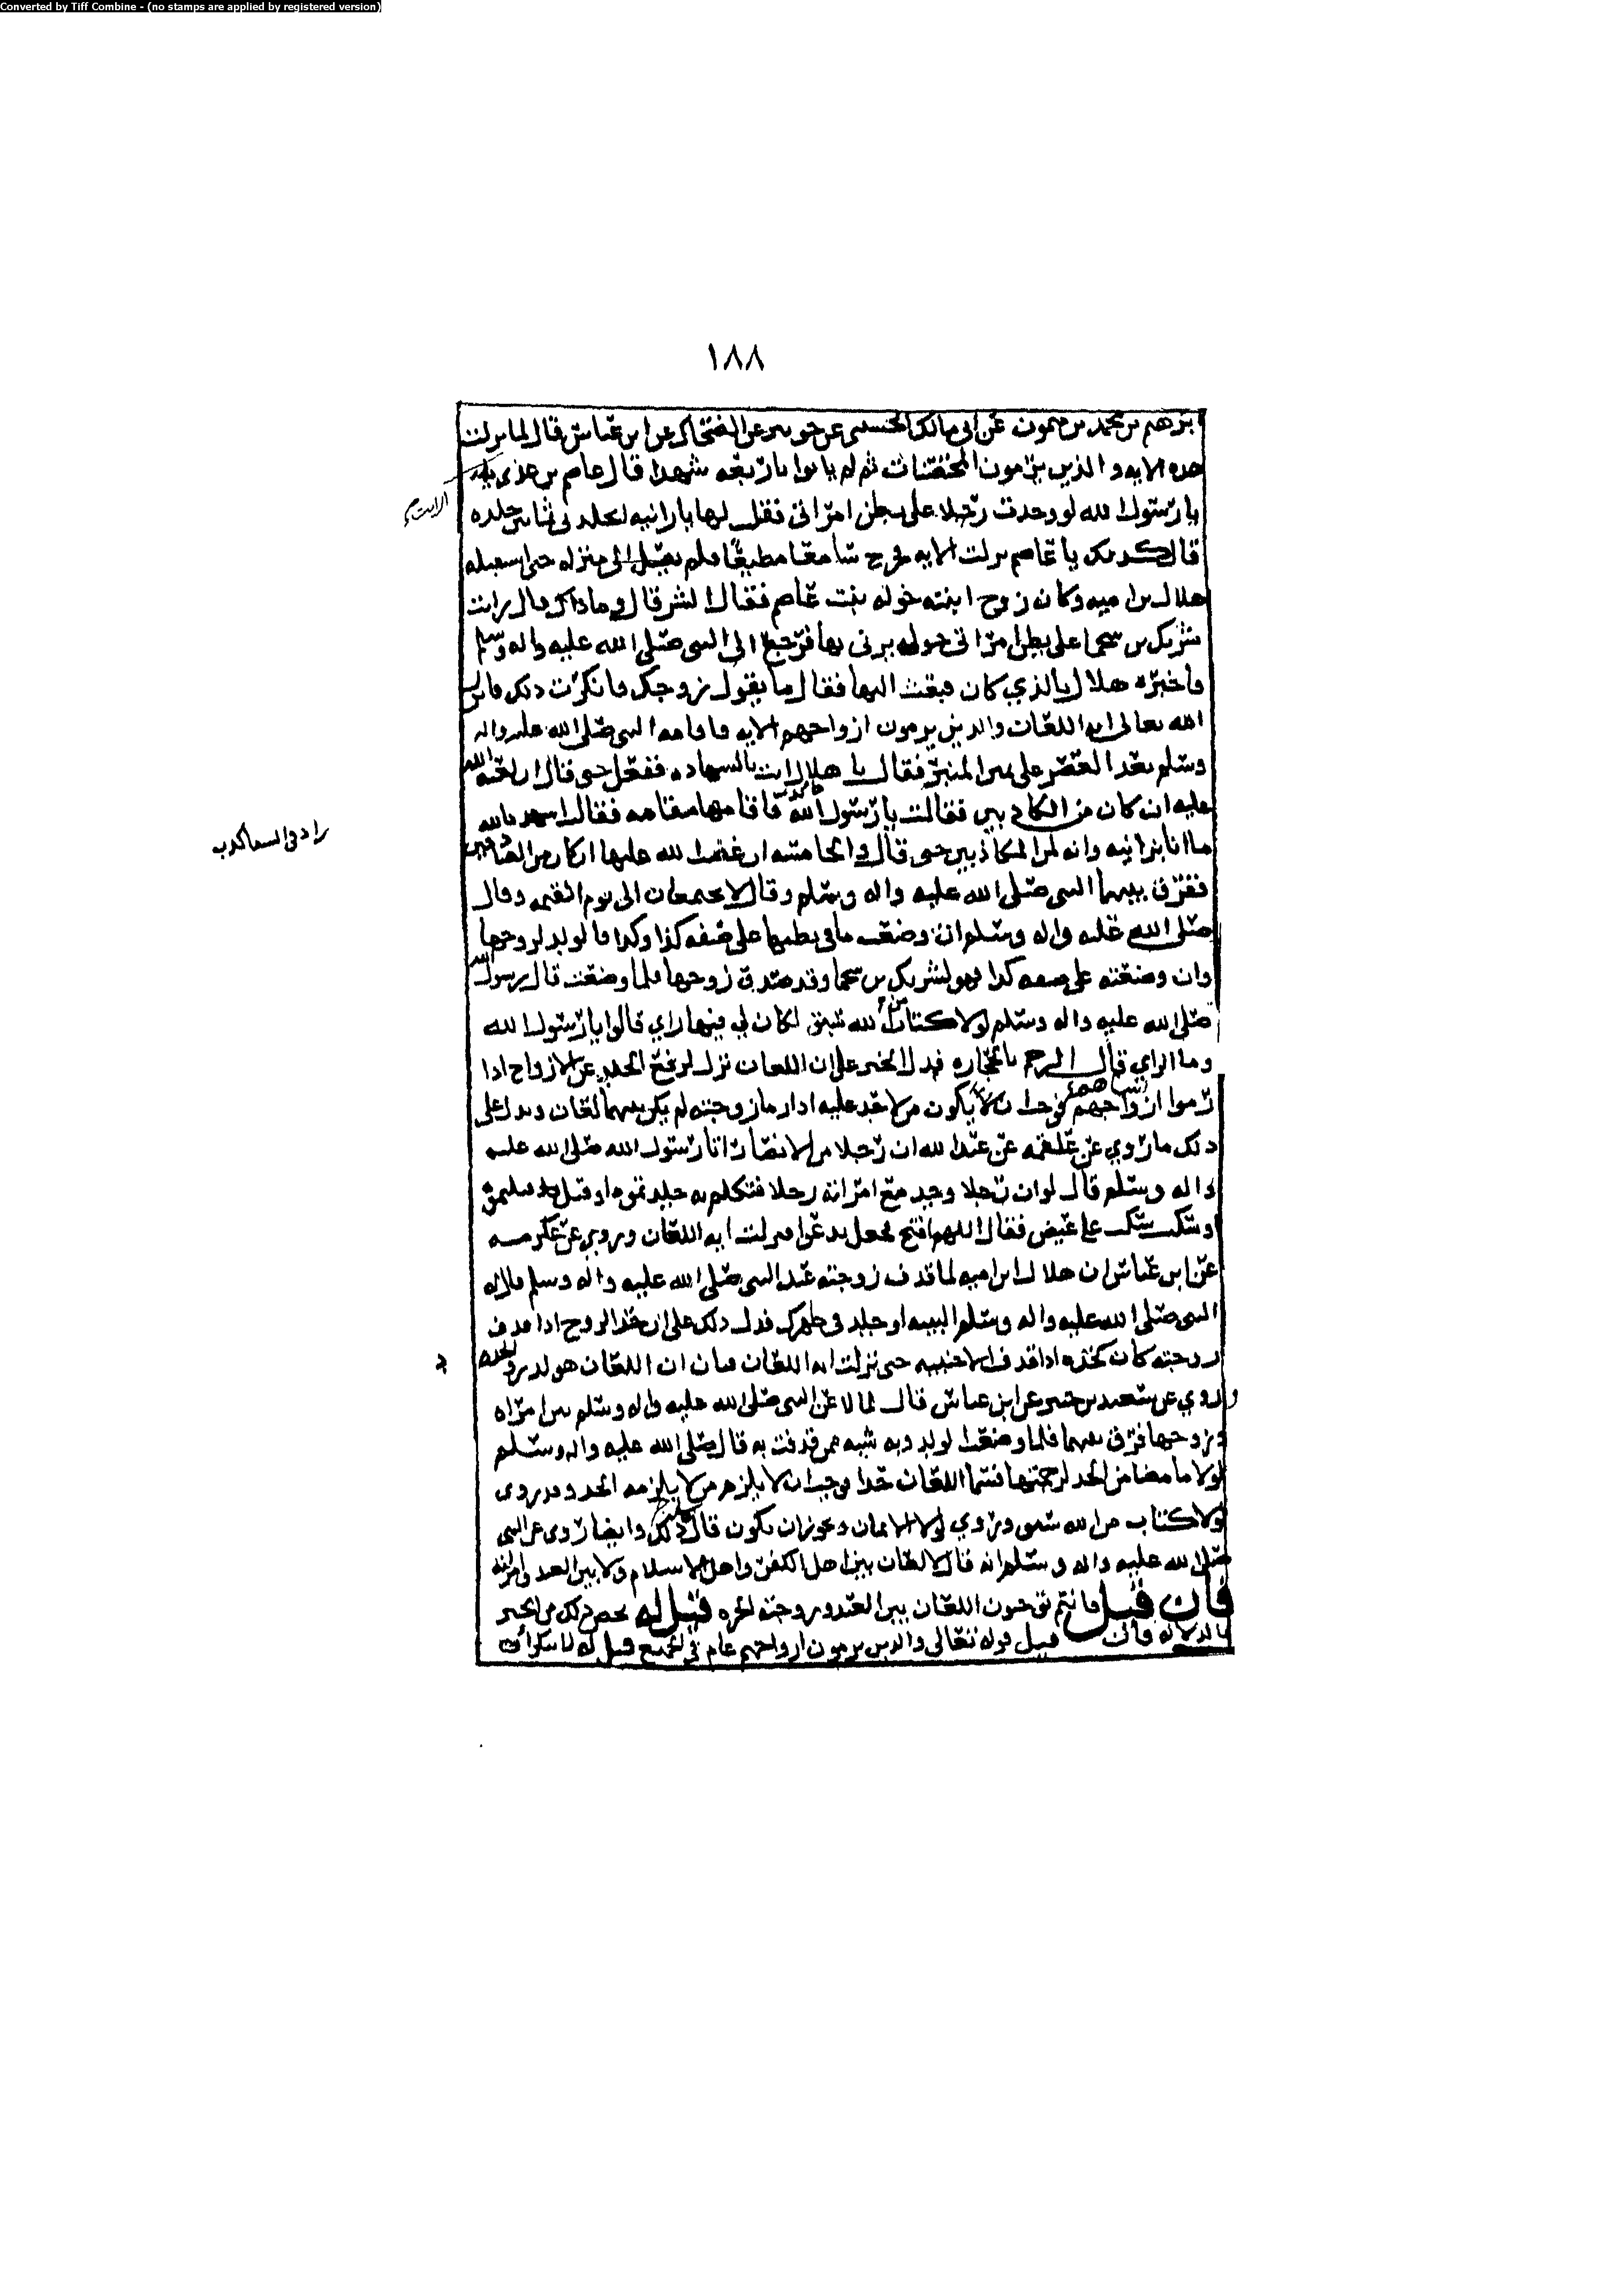 Converted by Tiff Combine - (no stamps are applied by registered version)
١٨٨
ابرهيم بن محمد بن ميمون عن ابي مالك عن جويبر عن الضحاك عن ابن عباس قال لما نزلت
هذه الايه والذين يرمون المحصنات ثم لم ياتوا باربعه شهدا قال عاصم بن عدي
يا رسول الله لو وجدت رجلا على بطن امراتي فقلت لها يا زانيه اتجلدني ثمانين جلده
قال كذلك يا عاصم نزلت الايه فخرج سامعا مطيعا فلم يصل الى منزله حتى استقبله
هلال بن اميه وكان زوج ابنته خوله بنت عاصم فقال الشر قال وما ذاك قال رايت
شريك بن سحما على بطن امراتي خوله يزني بها فرجع الى النبي صلى الله عليه واله وسلم
فاخبره هلال بالذي كان فبعث اليها فقال ما يقول زوجك فانكرت ذلك فانزل
الله تعالى ايه اللعان والذين يرمون ازواجهم الايه فاقامه النبي صلى الله عليه واله
وسلم بعد العصر على يمين المنبر فقال يا هلال ائت بالشهاده ففعل حتى قال ان لعنه الله
عليه ان كان من الكاذبين فقالت يا رسول الله فاقامها مقامه فقالت اشهد بالله
ما انا بزانيه وانه لمن الكاذبين حتى قال والخامسه ان غضب الله عليها ان كان من الصادقين
ففرق بينهما النبي صلى الله عليه واله وسلم وقال لا يجتمعان الى يوم القيمه وقال
صلى الله عليه واله وسلم ان وضعت ما في بطنها على صفه كذا وكذا فالولد لزوجها
وان وضعته على صفه كذا فهو لشريك بن سحما وقد صدق زوجها فلما وضعت قال رسول الله
صلى الله عليه واله وسلم لولا كتاب من الله سبق لكان لي فيها راي قالوا يا رسول الله
وما الراي قال الرجم بالحجاره فدل الخبر على ان اللعان نزل لرفع الحد عن الازواج اذا
رموا ازواجهم فوجب ان لا يكون من لا حد عليه اذا رما زوجته لم يكن بينهما لعان ويدل على
ذلك ما روي عن علقمه عن عبد الله ان رجلا من الانصار اتا رسول الله صلى الله عليه
واله وسلم قال لو ان رجلا وجد مع امراته رجلا فتكلم به جلدتموه او قتل قتلتموه
او سكت سكت على غيض فقال اللهم افتح فجعل يدعوا فنزلت ايه اللعان وروي عن عكرمه
عن ابن عباس ان هلال بن اميه لما قذف زوجته عند النبي صلى الله عليه واله وسلم قال له
النبي صلى الله عليه واله وسلم البينه او جلد في ظهرك فدل ذلك على ان حد الزوج اذا قذف
زوجته كان كحده اذا قذف الاجنبيه حتى نزلت ايه اللعان فبان ان اللعان هو لدرو الحد
وروي عن سعيد بن جبير عن ابن عباس قال لما لاعن النبي صلى الله عليه واله وسلم بين امراه
وزوجها فرق بينهما فلما وضعت الولد وبه شبه ممن قذفت به قال صلى الله عليه واله وسلم
لولا ما مضا من الحد لرجمتها فسما اللعان حدا فوجب ان لا يلزم من لا يلزمه الحد وقد روي
لولا كتاب من الله سبق وروي لولا الايمان وتجوز ان يكون قال ذلك وايضا روى عن النبي
صلى الله عليه واله وسلم انه قال لا لعان بين اهل الكفر واهل الاسلام ولا بين العبد وامراته
فان قيل فانتم توجبون اللعان بين العبد وزوجته الحره قيل له يخص ذلك من الخبر
بالدلاله فان قيل قوله تعالى والذين يرمون ازواجهم عام في الجميع قيل له